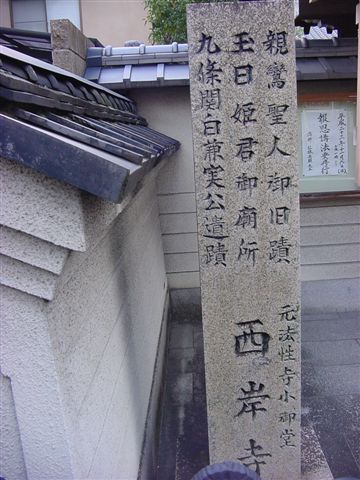 親鸞聖人御旧蹟
玉日姫君御廟所
九條関白兼実公遺蹟
元法性寺小御堂
西岸寺
報恩講法要厳修